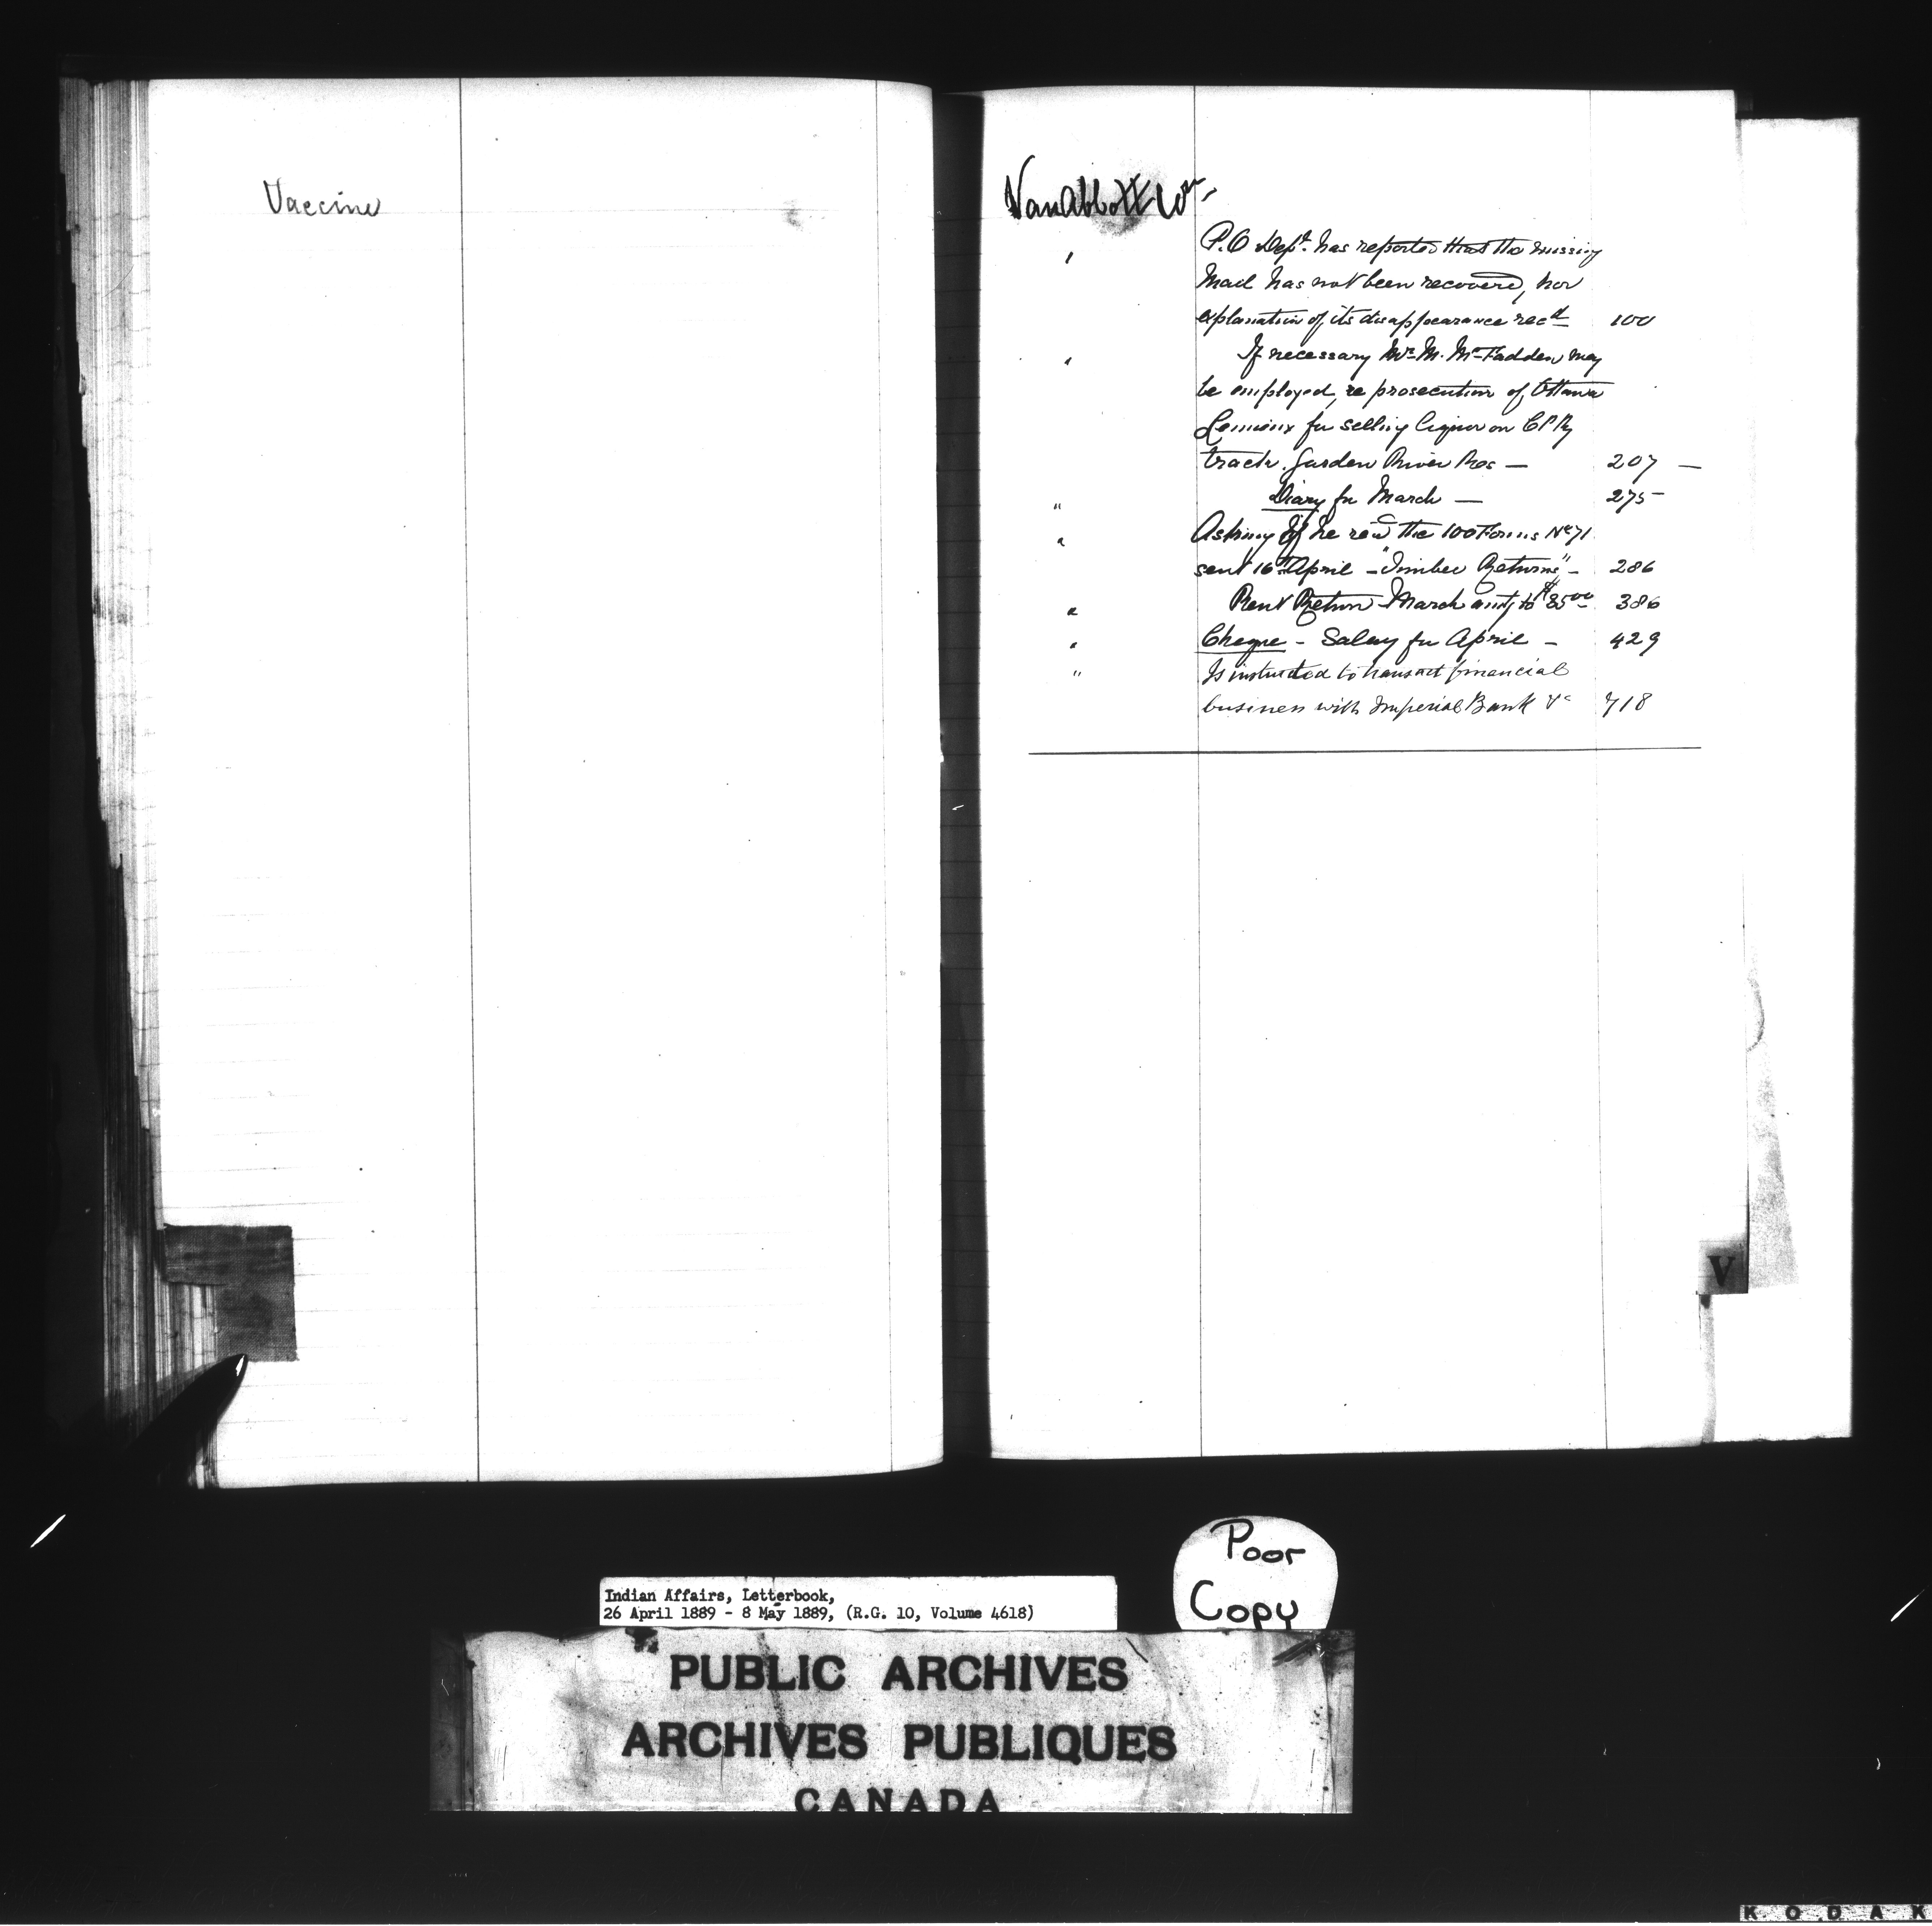 Vaccine
VanAbbott Wm,
" P.O Dept. has reported that the missing
Mail has not been recovered, nor
explanation of its disappearance recd 100
" If necessary Mr M. McFadden may
be employed, re prosecution of Ottawa
Lemieux for selling liquor on CPRy
track. Garden River Res — 207 —
" Diary for March — 275 —
" Asking if he recd the 100 Forms No 71
sent 16th April - "Timber Returns" - 286
" Rent Return March amtg to $3500 386
" Cheque - Salary for April - 429
" Is instructed to transact financial
business with Imperial Bank &c 718
V
Poor
Copy
Indian Affairs, Letterbook,
26 April 1889 - 8 May 1889, (R.G. 10, Volume 4618)
PUBLIC ARCHIVES
ARCHIVES PUBLIQUES
CANADA
KODAK